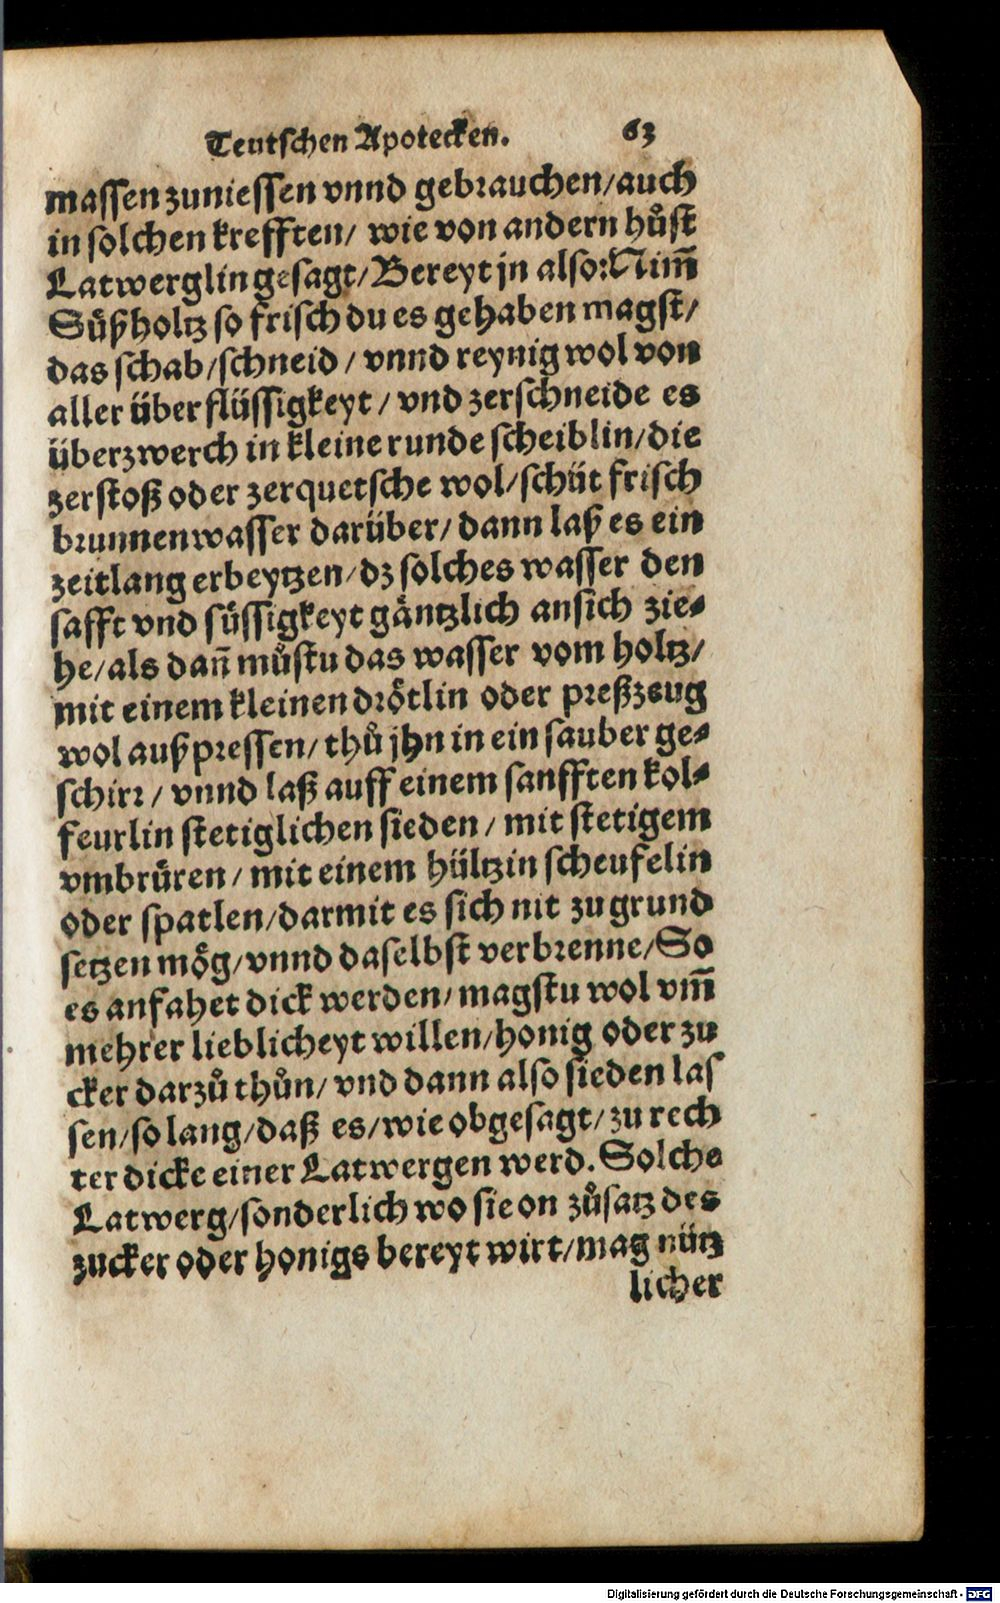 Teutschen Apotecken. 63
massen zuniessen vnnd gebrauchen/auch
in solchen krefften/ wie von andern hůst
Latwerglin gesagt/Bereyt jn also: Nim̄
Süßholtz so frisch du es gehaben magst/
das schab/schneid/ vnnd reynig wol von
aller überflüssigkeyt/ vnd zerschneide es
überzwerch in kleine runde scheiblin/die
zerstoß oder zerquetsche wol/schüt frisch
brunnenwasser darüber/ dann laß es ein
zeitlang erbeytzen/dz solches wasser den
safft vnd süssigkeyt gäntzlich ansich zie-
he/als dañ můstu das wasser vom holtz/
mit einem kleinen drötlin oder preßzeug
wol außpressen/ thů jhn in ein sauber ge-
schirr/ vnnd laß auff einem sanfften kol-
feurlin stetiglichen sieden/ mit stetigem
vmbrüren/ mit einem hültzin scheufelin
oder spatlen/darmit es sich nit zugrund
setzen mög/vnnd daselbst verbrenne/So
es anfahet dick werden/magstu wol vm̄
mehrer lieblicheyt willen/honig oder zu
cker darzů thůn/ vnd dann also sieden las
sen/so lang/daß es/wie obgesagt/zu rech
ter dicke einer Latwergen werd. Solche
Latwerg/sonderlich wo sie on zůsatz des
zucker oder honigs bereyt wirt/mag nütz
licher
Digitalisierung gefördert durch die Deutsche Forschungsgemeinschaft - DFG